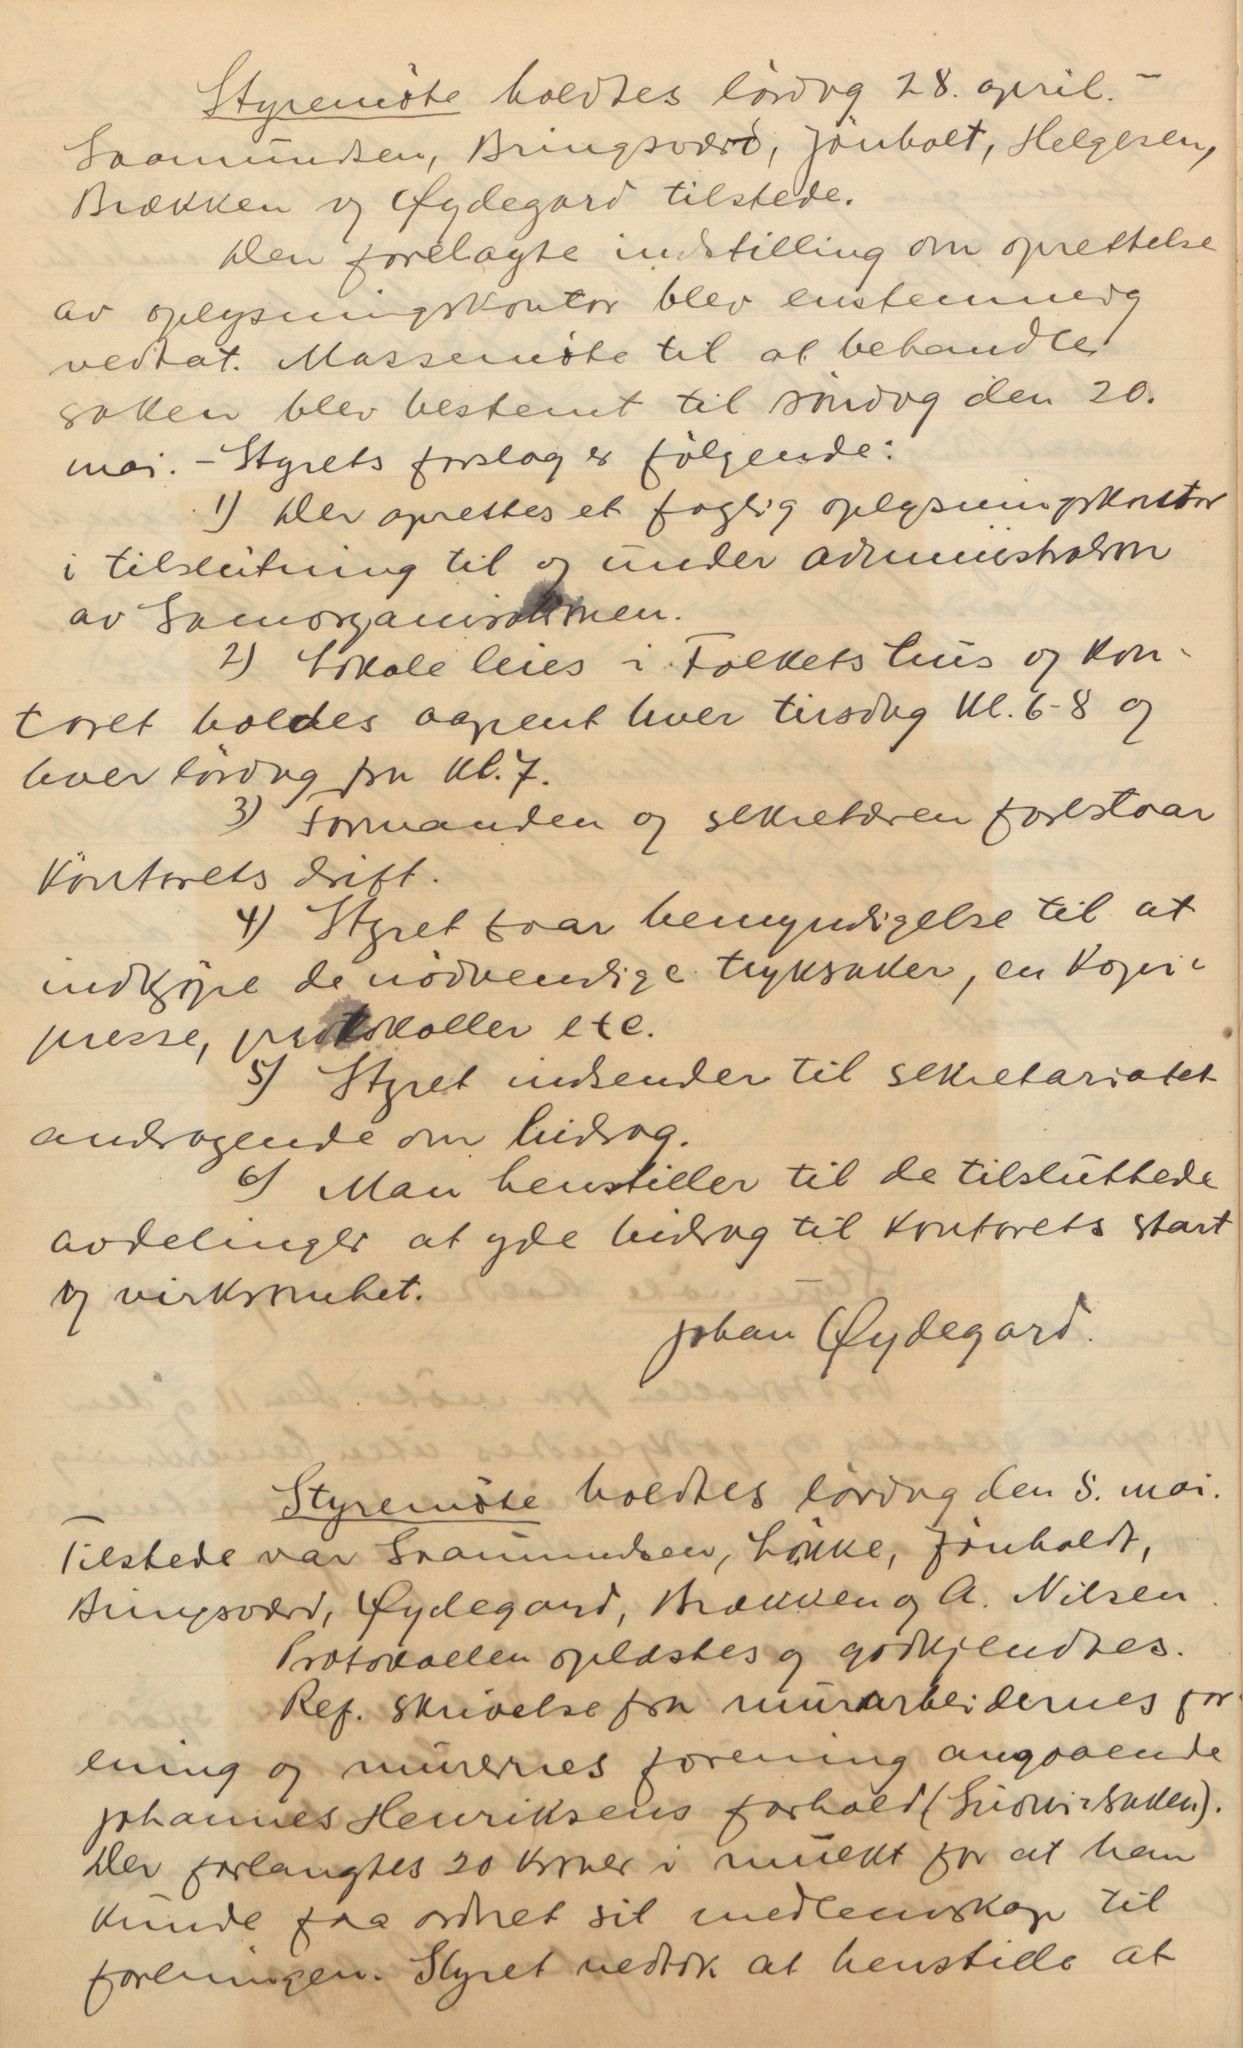 Styremöte holdtes lördag 28. april. –
Saamundsen, Bringsværd, Jönholt, Helgesen,
Brækken og Øydegard tilstede.
Den forelagte indstilling om oprettelse
av oplysningskontor blev enstemmig
vedtat. Massemöte til at behandle
saken blev bestemt til söndag den 20.
mai. – Styrets forslag er fölgende:
1) Der oprettes et faglig oplysningskontor
i tilslutning til og under administration
av Samorganisationen.
2) Lokale leies i Folkets hus og kon-
toret holdes aapent hver tirsdag kl. 6-8 og
hver lördag fra kl. 7.
3) Formanden og sekretæren forestaar
kontorets drift.
4) Styret faar bemyndigelse til at
indkjöpe de nödvendige tryksaker, en kopi-
presse, protokoller etc.
5) Styret indsender til sekretariatet
andragende om bidrag.
6) Man henstiller til de tilsluttede
avdelinger at yde bidrag til kontorets start
og virksomhet.
Johan Øydegard.
Styremöte holdtes lördag den 5. mai.
Tilstede var Saamundsen, Lökke, Jönholdt,
Bringsværd, Øydegard, Brækken og A. Nilsen.
Protokollen oplæstes og godkjendtes.
Ref. skrivelse fra murarbeidernes for-
ening og murernes forening angaaende
Johannes Henriksens forhold
Der forlangtes 20 kroner i mulkt for at han
kunde faa ordnet sit medlemskap til
foreningen. Styret vedtok at henstille at